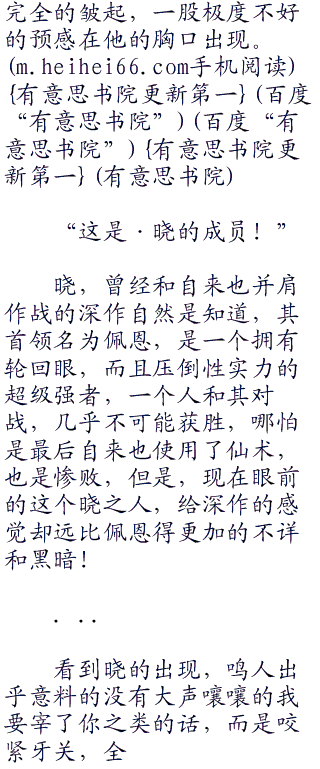 完全的皱起，一股极度不好
的预感在他的胸口出现。
(m.heihei66.com手机阅读)
{有意思书院更新第一}(百度
“有意思书院”)(百度“有
意思书院”){有意思书院更
新第一}(有意思书院)
“这是·晓的成员！”
晓，曾经和自来也并肩
作战的深作自然是知道，其
首领名为佩恩，是一个拥有
轮回眼，而且压倒性实力的
超级强者，一个人和其对
战，几乎不可能获胜，哪怕
是最后自来也使用了仙术，
也是惨败，但是，现在眼前
的这个晓之人，给深作的感
觉却远比佩恩得更加的不详
和黑暗！
. ..
看到晓的出现，鸣人出
乎意料的没有大声嚷嚷的我
要宰了你之类的话，而是咬
紧牙关，全